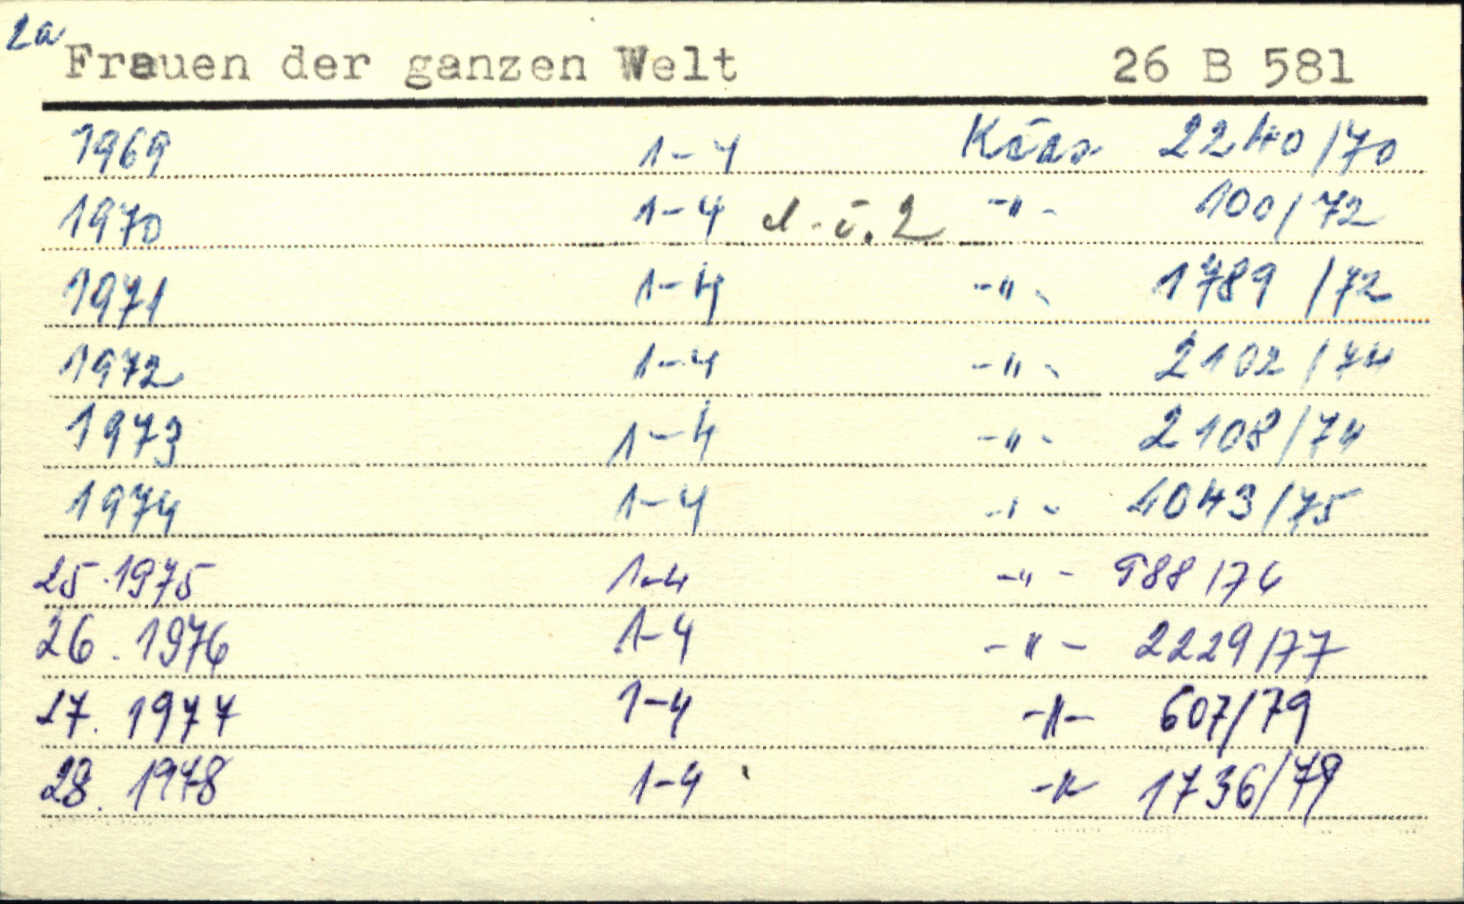 2a
Frauen der ganzen Welt 26 B 581
1969 1-4 2240/70
1970 1-4 -"- 100/72
1971 1-4 -"- 1789/72
1972 1-4 -"- 2102/74
1973 1-4 -"- 2108/74
1974 1-4 -"- 4043/75
25. 1975 1-4 -"- 988/76
26. 1976 1-4 -"- 2229/77
27. 1977 1-4 -"- 607/79
28. 1978 1-4 -"- 1736/79